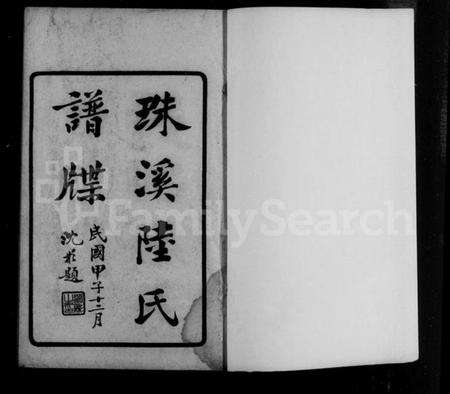 珠溪陸氏
譜牒
民國甲子十二月
沈彤題
FamilySearch